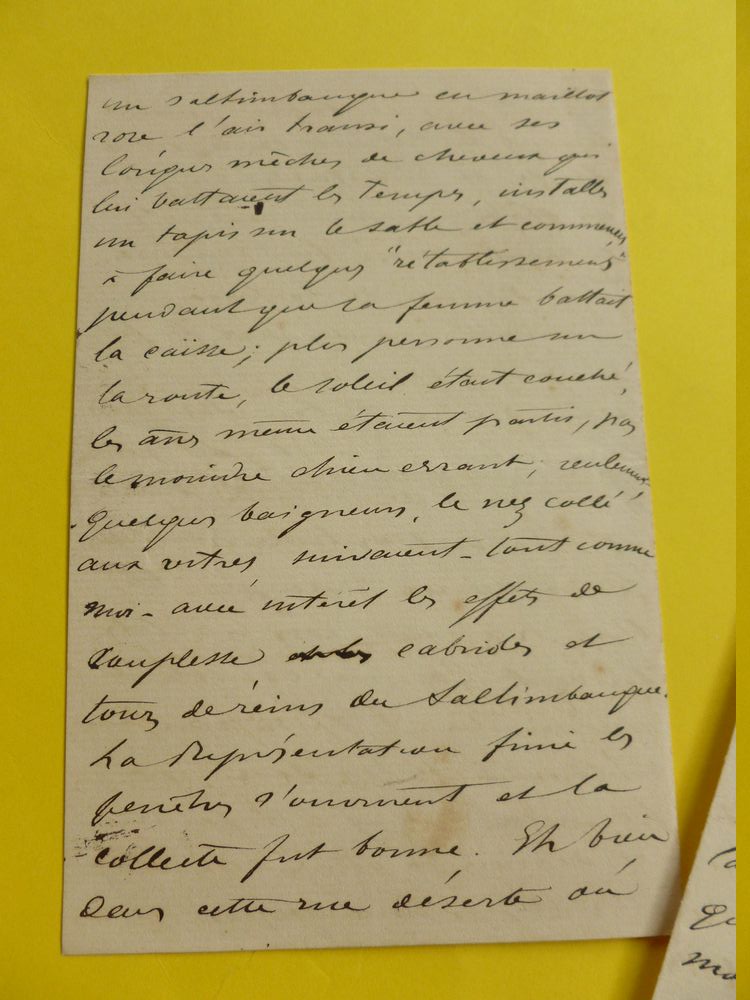 un saltimbanque en maillot
rose l'air transi, avec ses
longues mèches de cheveux qui
lui battaient les tempes, installe
un tapis sur le sable et commence
à faire quelques "rétablissements"
pendant que sa femme battait
la caisse; plus personne sur
la route, le soleil était couché,
les ânes même étaient partis, pas
le moindre chien errant; seulement
quelques baigneurs, le nez collé
aux vitres suivaient - tout comme
moi - avec intérêt les effets de
souplesse et les cabrides et
tours de reins du Saltimbanque.
La Représentation finie les
fenêtres s'ouvrirent et la
collecte fut bonne. Eh bien
dans cette rue déserte où